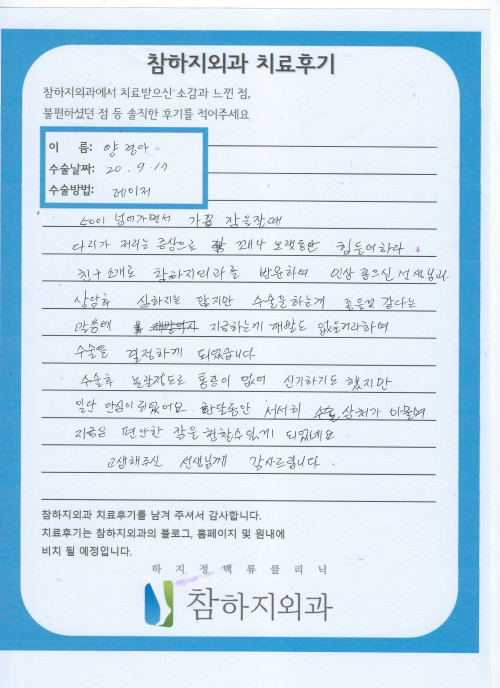 참하지외과 치료후기
참하지외과에서 치료받으신 소감과 느낀 점,
불편하셨던 점 등 솔직한 후기를 적어주세요
이 름: 양 정아
수술날짜: 20.9.17
수술방법: 레이저
50이 넘어가면서 가끔 잠을잘때
다리가 저리는 증상으로 꽤나 오랫동안 힘들어하다
친구 소개로 참하지외과를 방문하여 인상 좋으신 선생님과
상담후 심하지는 않지만 수술을하는게 좋을것 같다는
말씀에 지금하는게 재발도 없을거라하여
수술을 결정하게 되었습니다
수술후 놀랄정도로 통증이 없어 신기하기도 했지만
일단 안심이 되었어요. 한달동안 서서히 수술 상처가 아물며
지금은 편안한 잠을 청할수있게 되었네요
고생해주신 선생님께 감사드립니다.
참하지외과 치료후기를 남겨 주셔서 감사합니다.
치료후기는 참하지외과의 블로그, 홈페이지 및 원내에
비치 될 예정입니다.
하지정맥류클리닉
참하지외과